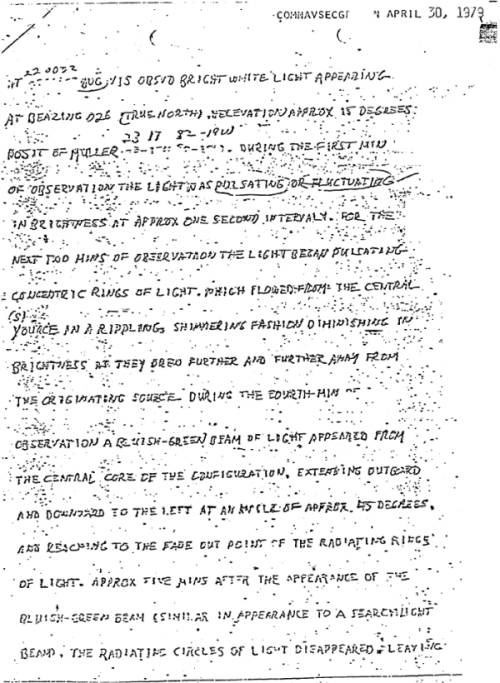 COMNAVSECGR APRIL 30, 1979
AT 220032 AUG, VIS OBSVD BRIGHT WHITE LIGHT APPEARING
AT BEAZING 026 (TRUE NORTH), YELEVATION APPROX 15 DEGREES.
23 17 82-19W
POSIT OF MULLER DURING THE FIRST MIN
OF OBSERVATION THE LIGHT WAS PULSATING OR FLUCTUATING
IN BRIGHTNESS AT APPROX ONE SECOND INTERVALY. FOR THE
NEXT TWO MINS OF OBSERVATAON THE LIGHT BEGAN PULSATING
CONCENTRIC RINGS OF LIGHT. WHICH FLOWED FROM THE CENTRAL
(S)
YOURCE IN A RIPPLING, SHIMMERING FASHION DIMINISHING IN
BRIGHTNESS AT THEY DREW FURTHER AND FURTHER AWAY FROM
THE ORIGINATING SOURCE. DURING THE FOURTH MIN OF
OBSERVATION A BLUISH-GREEN BEAM OF LIGHT APPEARED FROM
THE CENTRAL CORE OF THE CONFIGURATION, EXTENDING OUTWARD
AND DOWNWARD TO THE LEFT AT AN ANGLE OF APPROX 45 DEGREES,
AND REACHING TO THE FADE OUT POINT OF THE RADIATING RINGS
OF LIGHT. APPROX FIVE MINS AFTER THE APPEARANCE OF THE
BLUISH-GREEN BEAM (SIMILAR IN APPEARANCE TO A SEARCHLIGHT
BEAM), THE RADIATING CIRCLES OF LIGHT DISAPPEARED, LEAVING